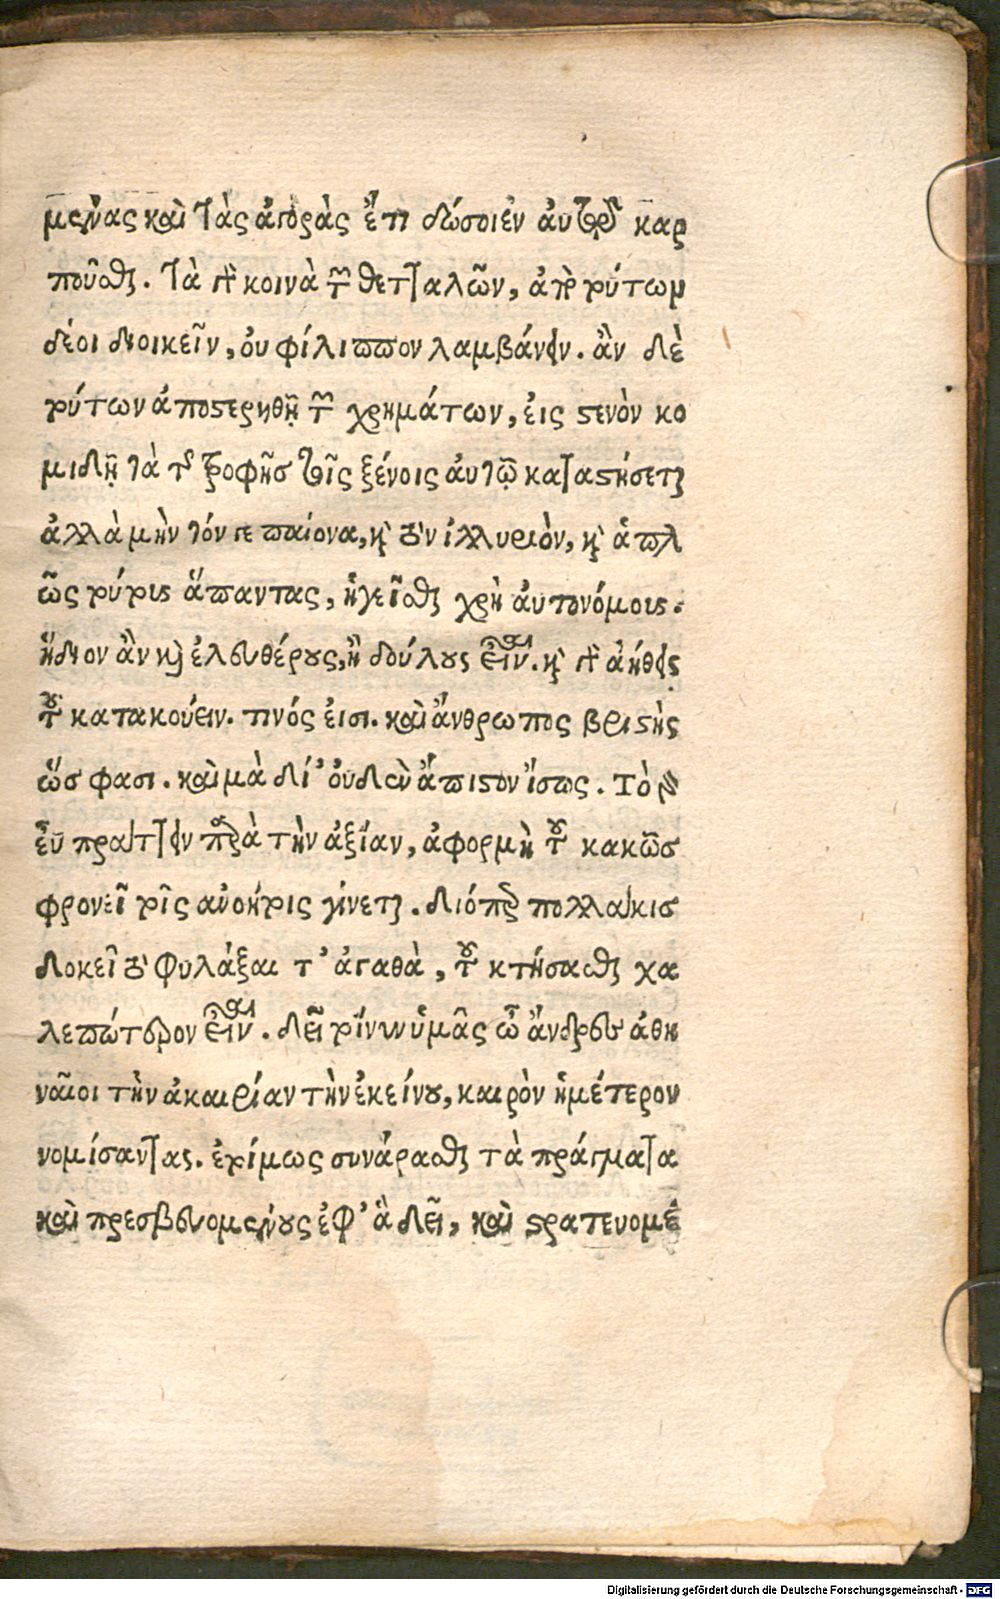 μένας καὶ τὰς ἀγορὰς ἔτι δώσοιεν αὐτῷ καρ
ποῦσθαι. τὰ γὰρ κοινὰ τῶν θετταλῶν, ἀπὸ τούτων
δέοι διοικεῖν, οὐ φίλιππον λαμβάνειν. ἂν δὲ
τούτων ἀποστερηθῇ τῶν χρημάτων, εἰς στενὸν κο
μιδῇ τὰ τῆς τροφῆς τοῖς ξένοις αὐτῷ καταστήσεται
ἀλλὰ μὴν τόν γε παίονα, καὶ τὸν ἰλλυριὸν, καὶ ἁπλ
ῶς τούτους ἅπαντας, ἡγεῖσθαι χρὴ αὐτονόμους.
ἥδιον ἂν καὶ ἐλευθέρους, ἢ δούλους εἶναι. καὶ γὰρ ἀήθεις
τοῦ κατακούειν. τινός εἰσι. καὶ ἄνθρωπος βριστὴς
ὥς φασι. καὶ μὰ δί' οὐδὲν ἄπιστον ἴσως. τὸ γὰρ
εὖ πράττειν παρὰ τὴν ἀξίαν, ἀφορμὴ τοῦ κακῶς
φρονεῖ τοῖς ἀνοήτοις γίνεται. διόπερ πολλάκις
δοκεῖ τὸ φυλάξαι τ' ἀγαθὰ, τοῦ κτήσασθαι χα
λεπώτερον εἶναι. δεῖ τοίνυν ὑμᾶς ὦ ἄνδρες ἀθη
ναῖοι τὴν ἀκαιρίαν τὴν ἐκείνου, καιρὸν ἡμέτερον
νομίσαντας. ἑτοίμως συνάρασθαι τὰ πράγματα
καὶ πρεσβευομένους ἐφ' ἃ δεῖ, καὶ στρατευομέ
Digitalisierung gefördert durch die Deutsche Forschungsgemeinschaft - DFG